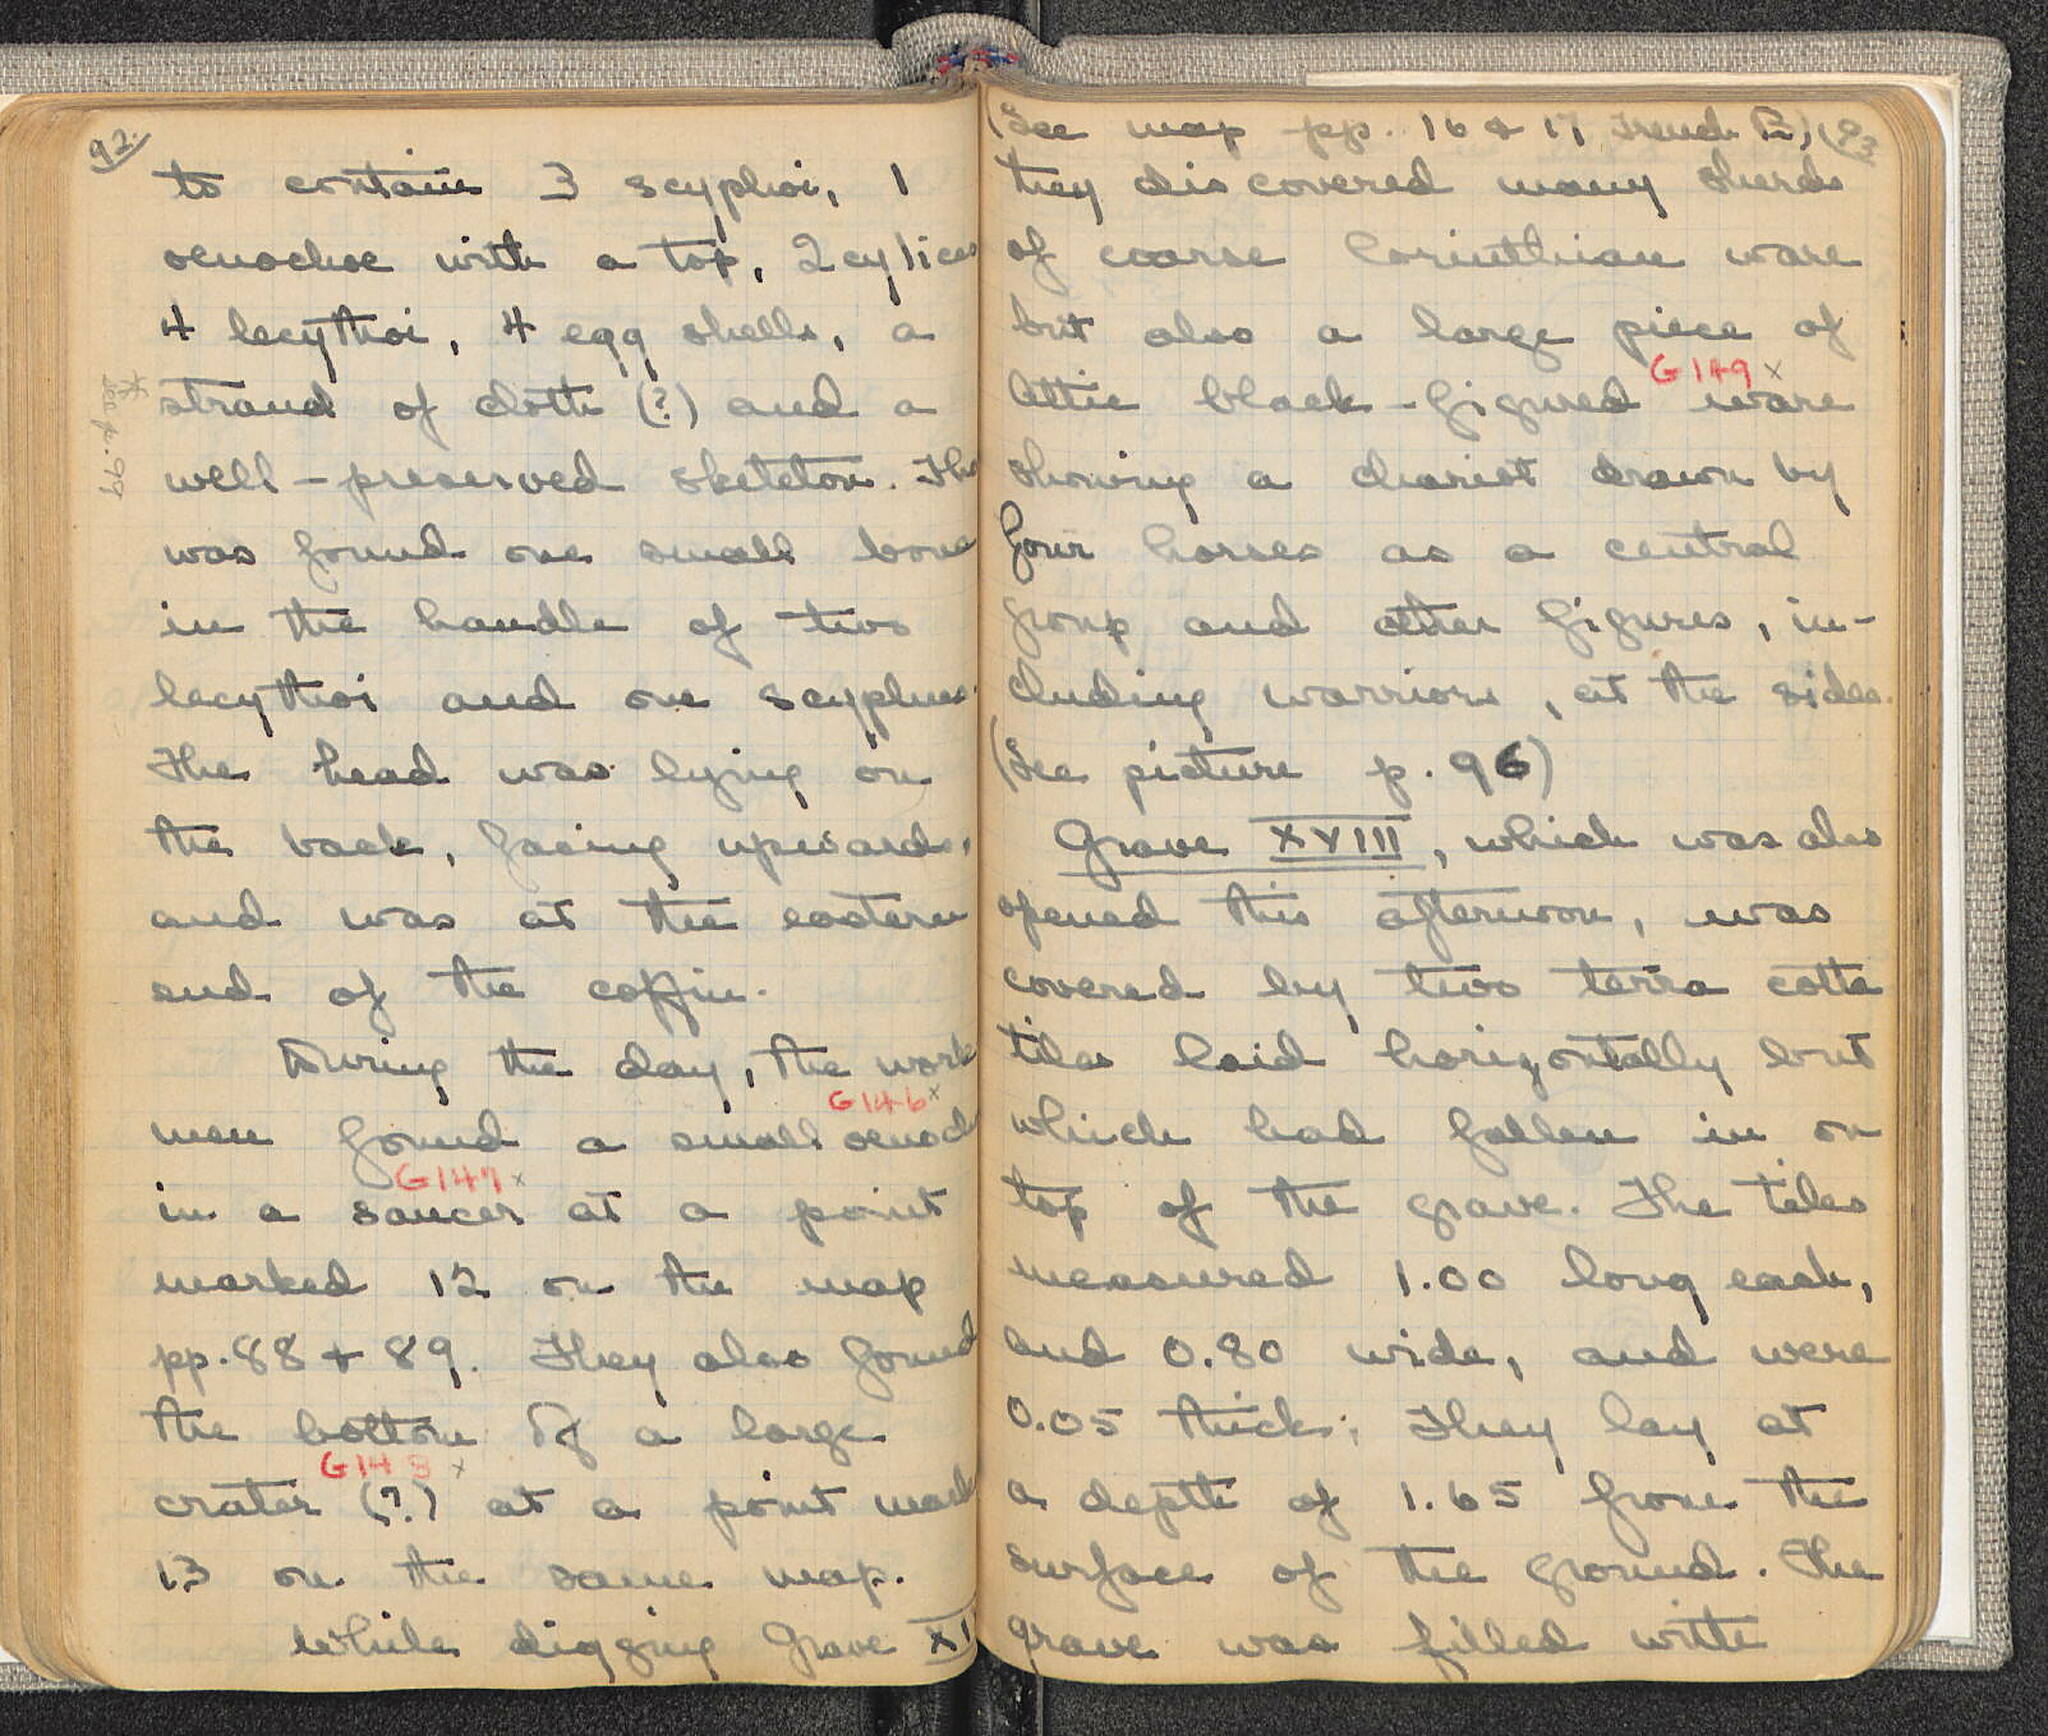 92.
to contain 3 scyphoi, 1
oenochoe with a top, 2 cylices
4 lecythoi, 4 egg shells, a
strand of cloth (?) and a
* See p. 94
well-preserved skeleton. The
was found one small bone
in the handle of two
lecythoi and one scyphus.
The head was lying on
the back, facing upwards,
and was at the eastern
end of the coffin.
During the day, the work
G146 x
men found a small oenoch
G147 x
in a saucer at a point
marked 12 on the map
pp. 88 + 89. They also found
the bottom of a large
G148 x
crater (?) at a point mark
13 on the same map.
While digging Grave XI
(See map pp. 16 + 17 Trench B) (93
they discovered many sherds
of coarse Corinthian ware
but also a large piece of
G149 x
Attic black-figured ware
showing a chariot drawn by
four horses as a central
group and other figures, in-
cluding warriors, at the sides.
(See picture p. 96)
Grave XVIII, which was also
opened this afternoon, was
covered by two terra cotta
tiles laid horizontally but
which had fallen in on
top of the grave. The tiles
measured 1.00 long each,
and 0.80 wide, and were
0.05 thick; They lay at
a depth of 1.65 from the
surface of the ground. The
grave was filled with